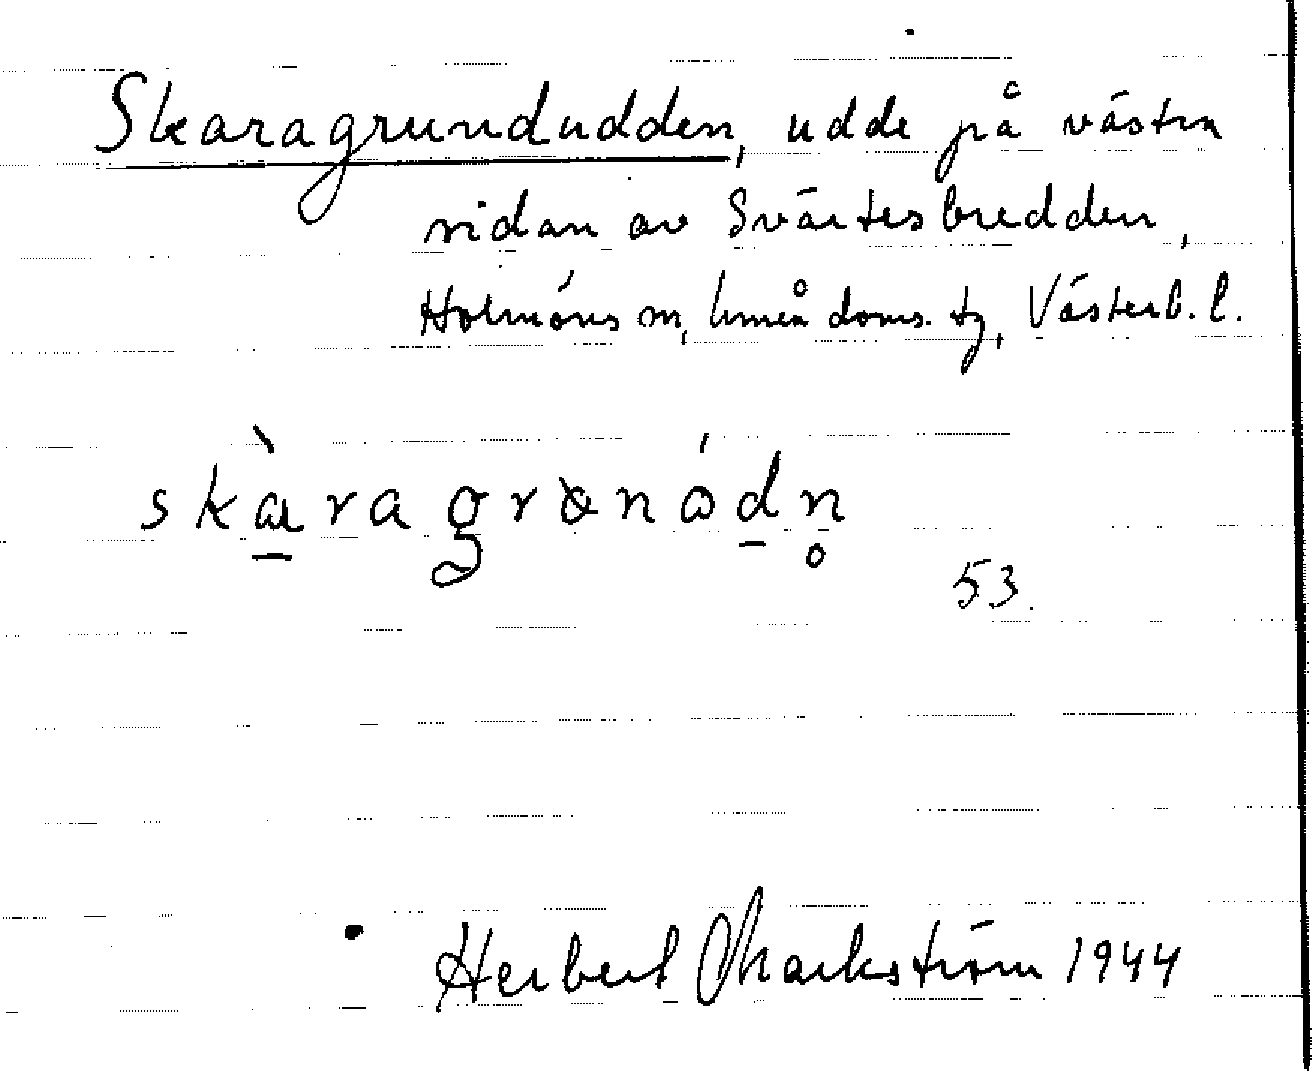 Skaragrundudden, udde på västra
sidan av Svärtesbredden,
Holmöns sn, Umeå doms. tg, Västerb. l.
skàragrɷnɷ́dn̥
53.
Herbert Markström 1944